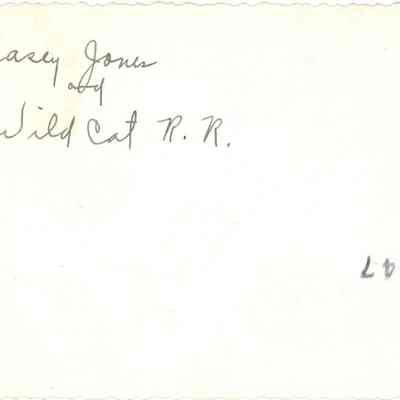 asey Jones
and
Wild Cat R. R.